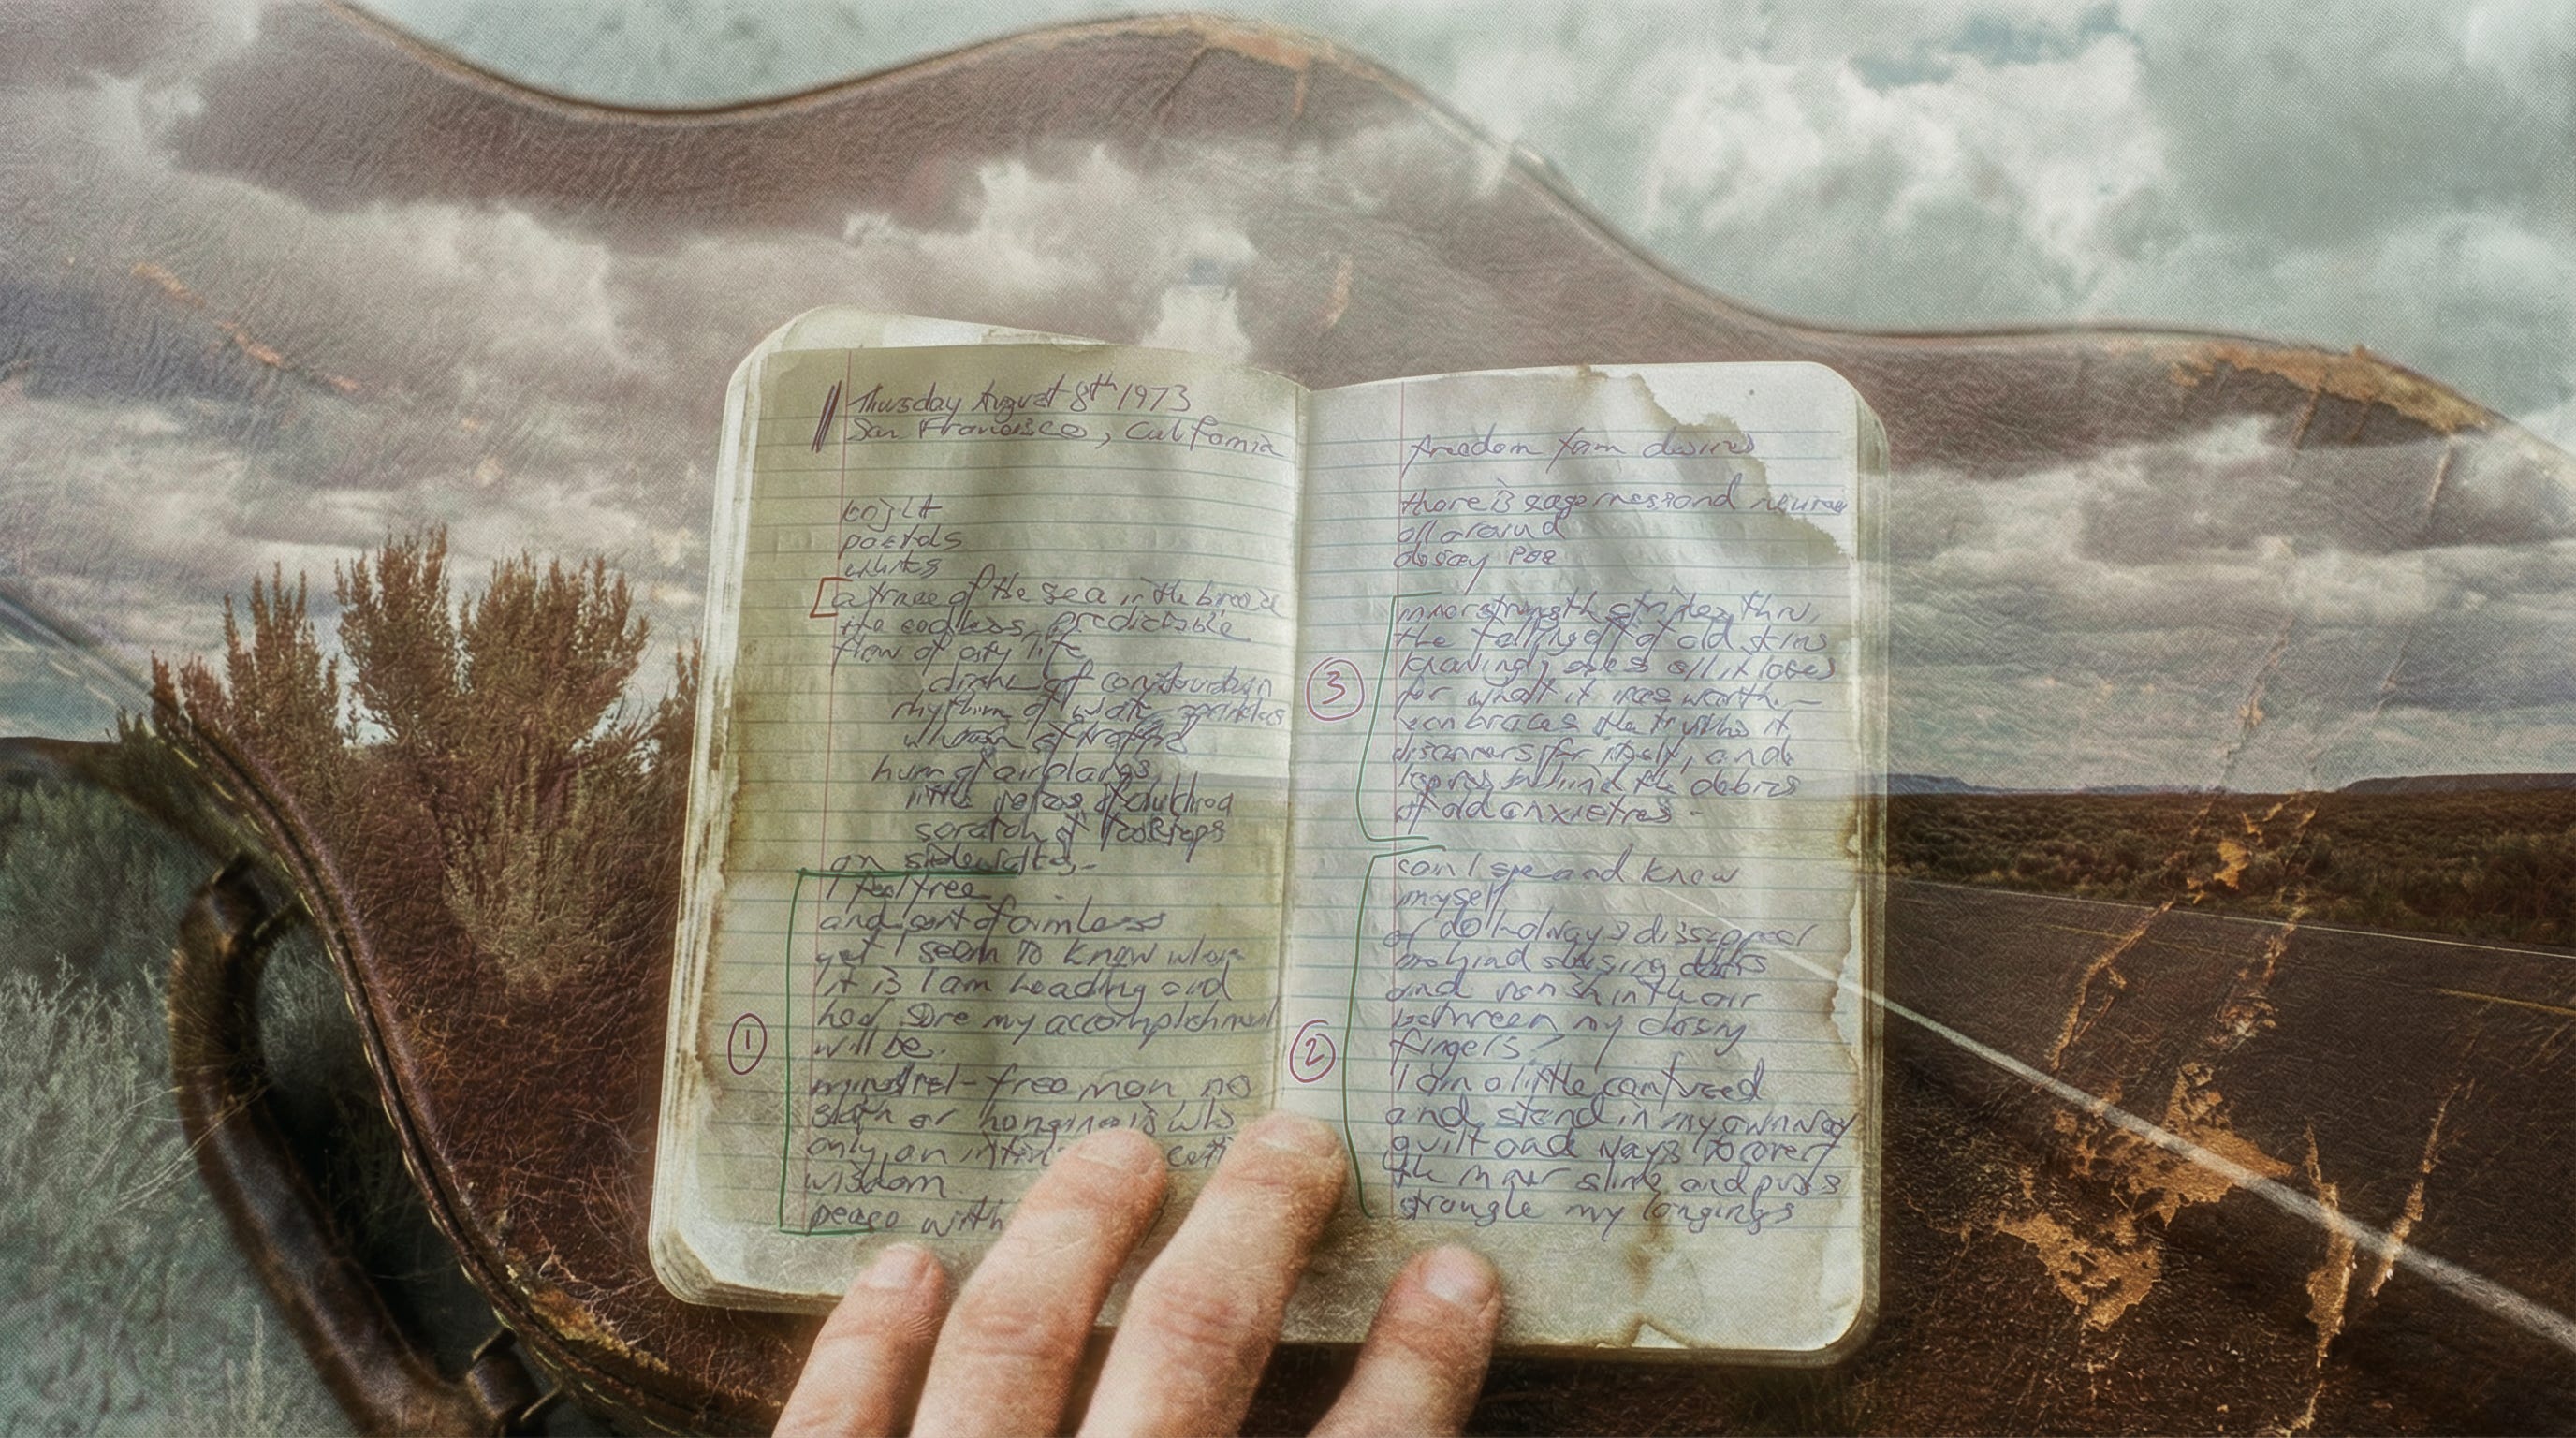 Thursday August 8th 1973
San Francisco, California
pastels
whites
a trace of the sea in the breeze
the endless, predictable
flow of city life
of construction
rhythm of water sprinklers
whoosh of traffic
hum of airplanes
little of children
scratch of footsteps
on sidewalks -
I feel free
and sort of aimless
yet I seem to know where
it is I am heading and
how sure my accomplishment
will be.
minstrel - free man, no
or hanging is who
only an
wisdom
peace with
freedom from desires
there is eagerness and
all around
obscey poe
inner strength strides thru,
the falling off of old skins
knowingly sees all it loses
for what it was worth. -
embraces the truths it
discovers for itself, and
leaves behind the debris
of old anxieties -
can I see and know
myself
or do I always disappear
behind closing doors
and vanish in the air
between my
fingers?
I am a little confused
and stand in my own way
guilt and ways to cover
the inner slime and pus
strangle my longings
3
1
2